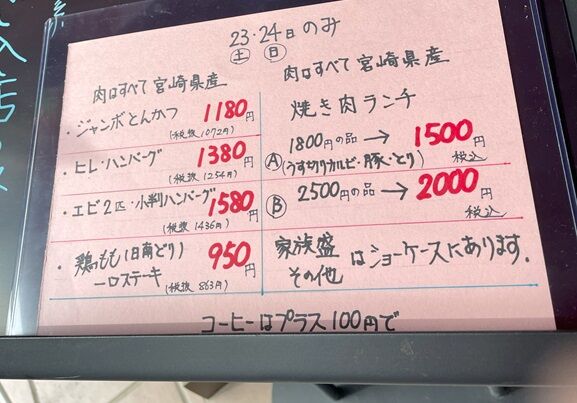 23・24日のみ
土 日
肉はすべて宮崎県産
・ジャンボとんかつ 1180円
(税抜1072円)
・ヒレ・ハンバーグ 1380円
(税抜1254円)
・エビ2匹・小判ハンバーグ 1580円
(税抜1436円)
・鶏もも(日南どり) 950円
一口ステーキ
(税抜863円)
肉はすべて宮崎県産
焼き肉ランチ
1800円の品→1500円
Ⓐ(うす切りカルビ・豚・とり) 税込
Ⓑ 2500円の品→2000円
税込
家族盛
その他 はショーケースにあります.
コーヒーはプラス100円で